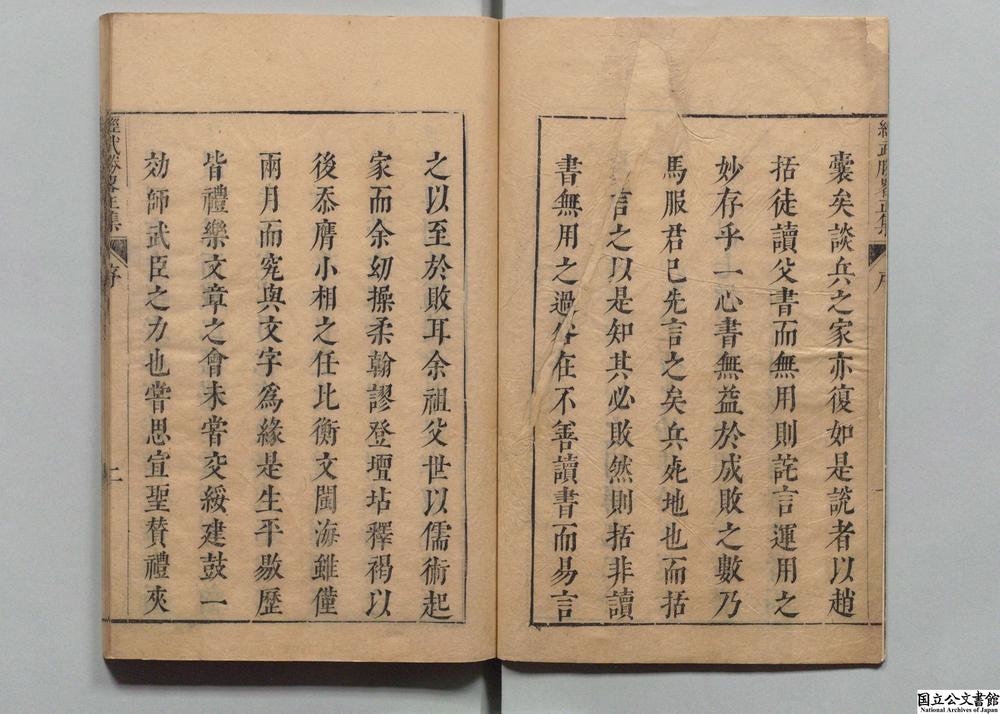 囊矣談兵之家亦復如是説者以趙
括徒讀父書而無用則詫言運用之
妙存乎一心書無益於成敗之數乃
馬服君已先言之矣兵死地也而括
易言之以是知其必敗然則括非讀
書無用之過咎在不善讀書而易言
之以至於敗耳余祖父世以儒術起
家而余幼操柔翰謬登壇坫釋褐以
後忝膺小相之任比衡文閩海雖僅
兩月而究與文字爲緣是生平敭歷
皆禮樂文章之會未嘗交綏建鼓一
効師武臣之力也嘗思宣聖贊禮夾
經武勝畧正集
序
二
国立公文書館
National Archives of Japan